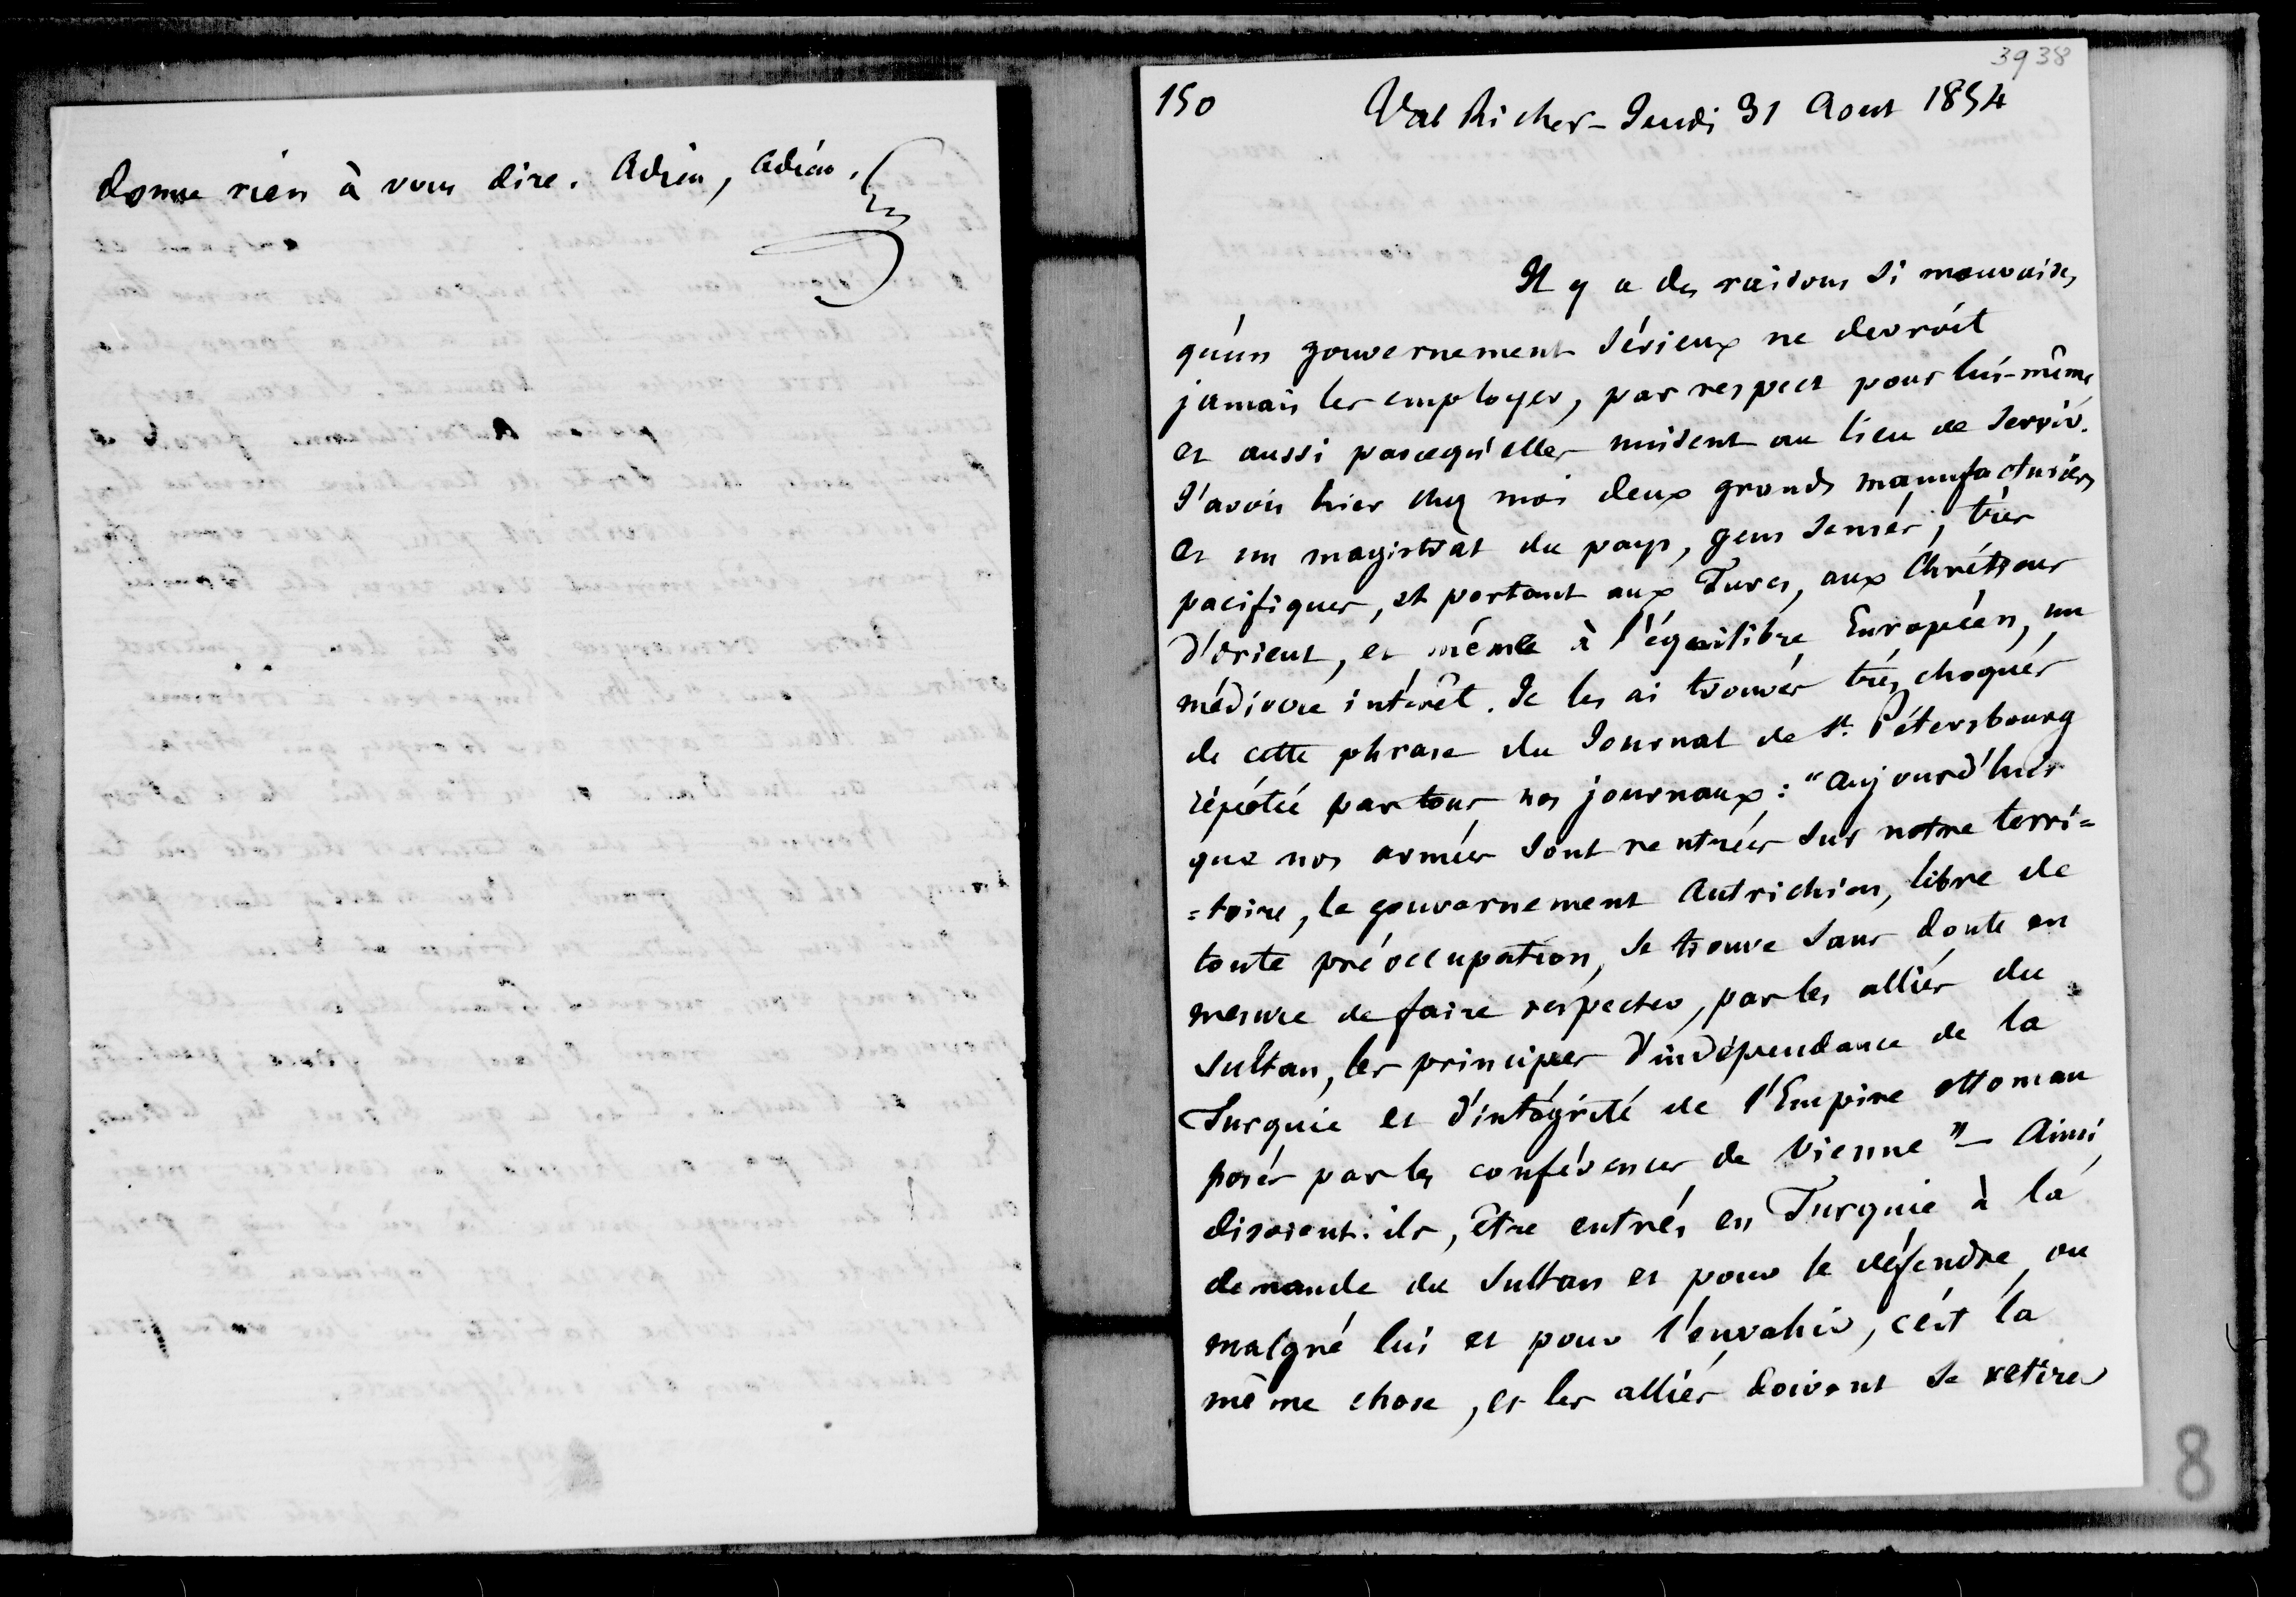 donne rien à vous dire. Adieu, adieu.
3938
150
Val Richer - Jeudi 31 Aout 1854
Il y a des raisons si mauvaises
qu'un gouvernement sérieux ne devroit
jamais les employer, par respect pour lui-même,
et aussi parcequ'elles nuisent au lieu de servir.
J'avois hier chez moi deux grands manufacturiers
et un magistrat du pays, gens sensés, très
pacifiques, et portant aux Turcs, aux Chrétiens
d'orient, et même à l'équilibre Européen, un
médiocre intérêt. Je les ai trouvés très choqués
de cette phrase du Journal de St. Pétersbourg
répétée par tous nos journaux: "Aujourd'hui
que nos armées sont rentrées sur notre terri=
=toire, le gouvernement Autrichien, libre de
toute préoccupation, se trouve sans doute en
mesure de faire respecter, par les alliés du
Sultan, les principes d'indépendance de la
Turquie et d'intégrité de l'Empire ottoman
posés par les conférences de Vienne" - Ainsi,
disoient-ils, être entrés en Turquie à la
demande du Sultan et pour le défendre, ou
malgré lui et pour l'envahir, c'est la
même chose, et les alliés doivent se retirer
8